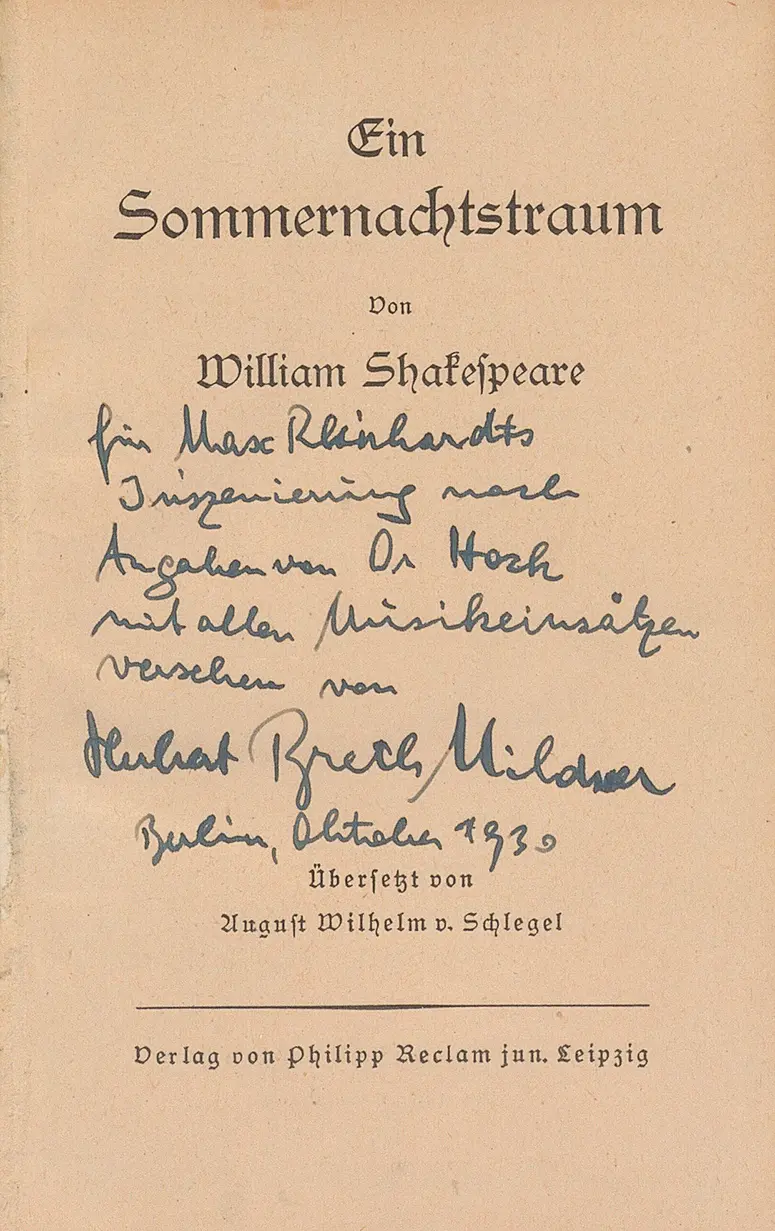 Ein
Sommernachtstraum
Von
William Shakespeare
für Max Reinhardts
Inszenierung nach
Angaben von Dr Hock
mit allen Musikeinsätzen
versehen von
Herbert Breth Mildner
Berlin, Oktober 1930
Übersetzt von
August Wilhelm v. Schlegel
Verlag von Philipp Reclam jun. Leipzig